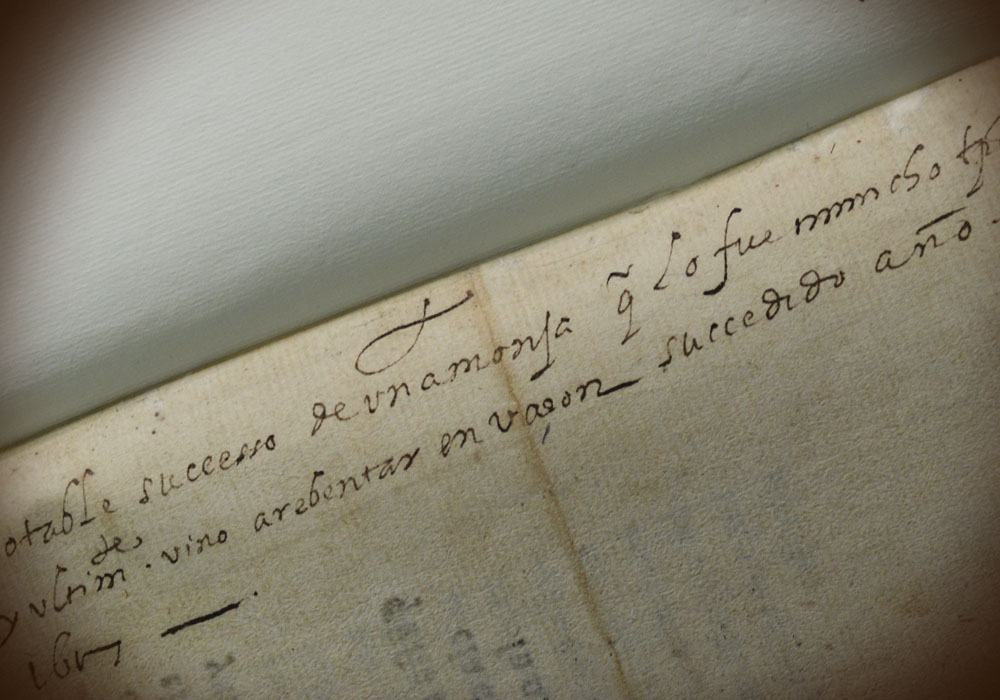 otable successo de vna monja q̃ lo fue muncho tp̃o
y vltim . vino arebentar en varon succedido año .
de